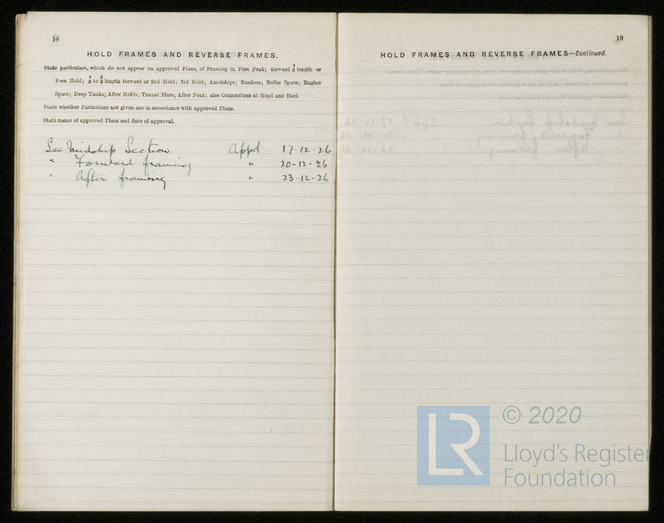 18
HOLD FRAMES AND REVERSE FRAMES.
State particulars, which do not appear on approved Plans, of Framing in Fore Peak; forward ⅓ length or
Fore Hold; to length forward or 2nd Hold; 3rd Hold; Amidships; Bunkers; Boiler Space; Engine
Space; Deep Tanks; After Holds; Tunnel Flats; After Peak; also Connections at Head and Heel.
State whether Particulars not given are in accordance with approved Plans.
State name of approved Plans and date of approval.
See Midship Section Appd. 17-12-26
" Forward framing " 20-12-26
" After framing " 23-12-26
19
HOLD FRAMES AND REVERSE FRAMES—Continued.
LR
© 2020
Lloyd's Register
Foundation